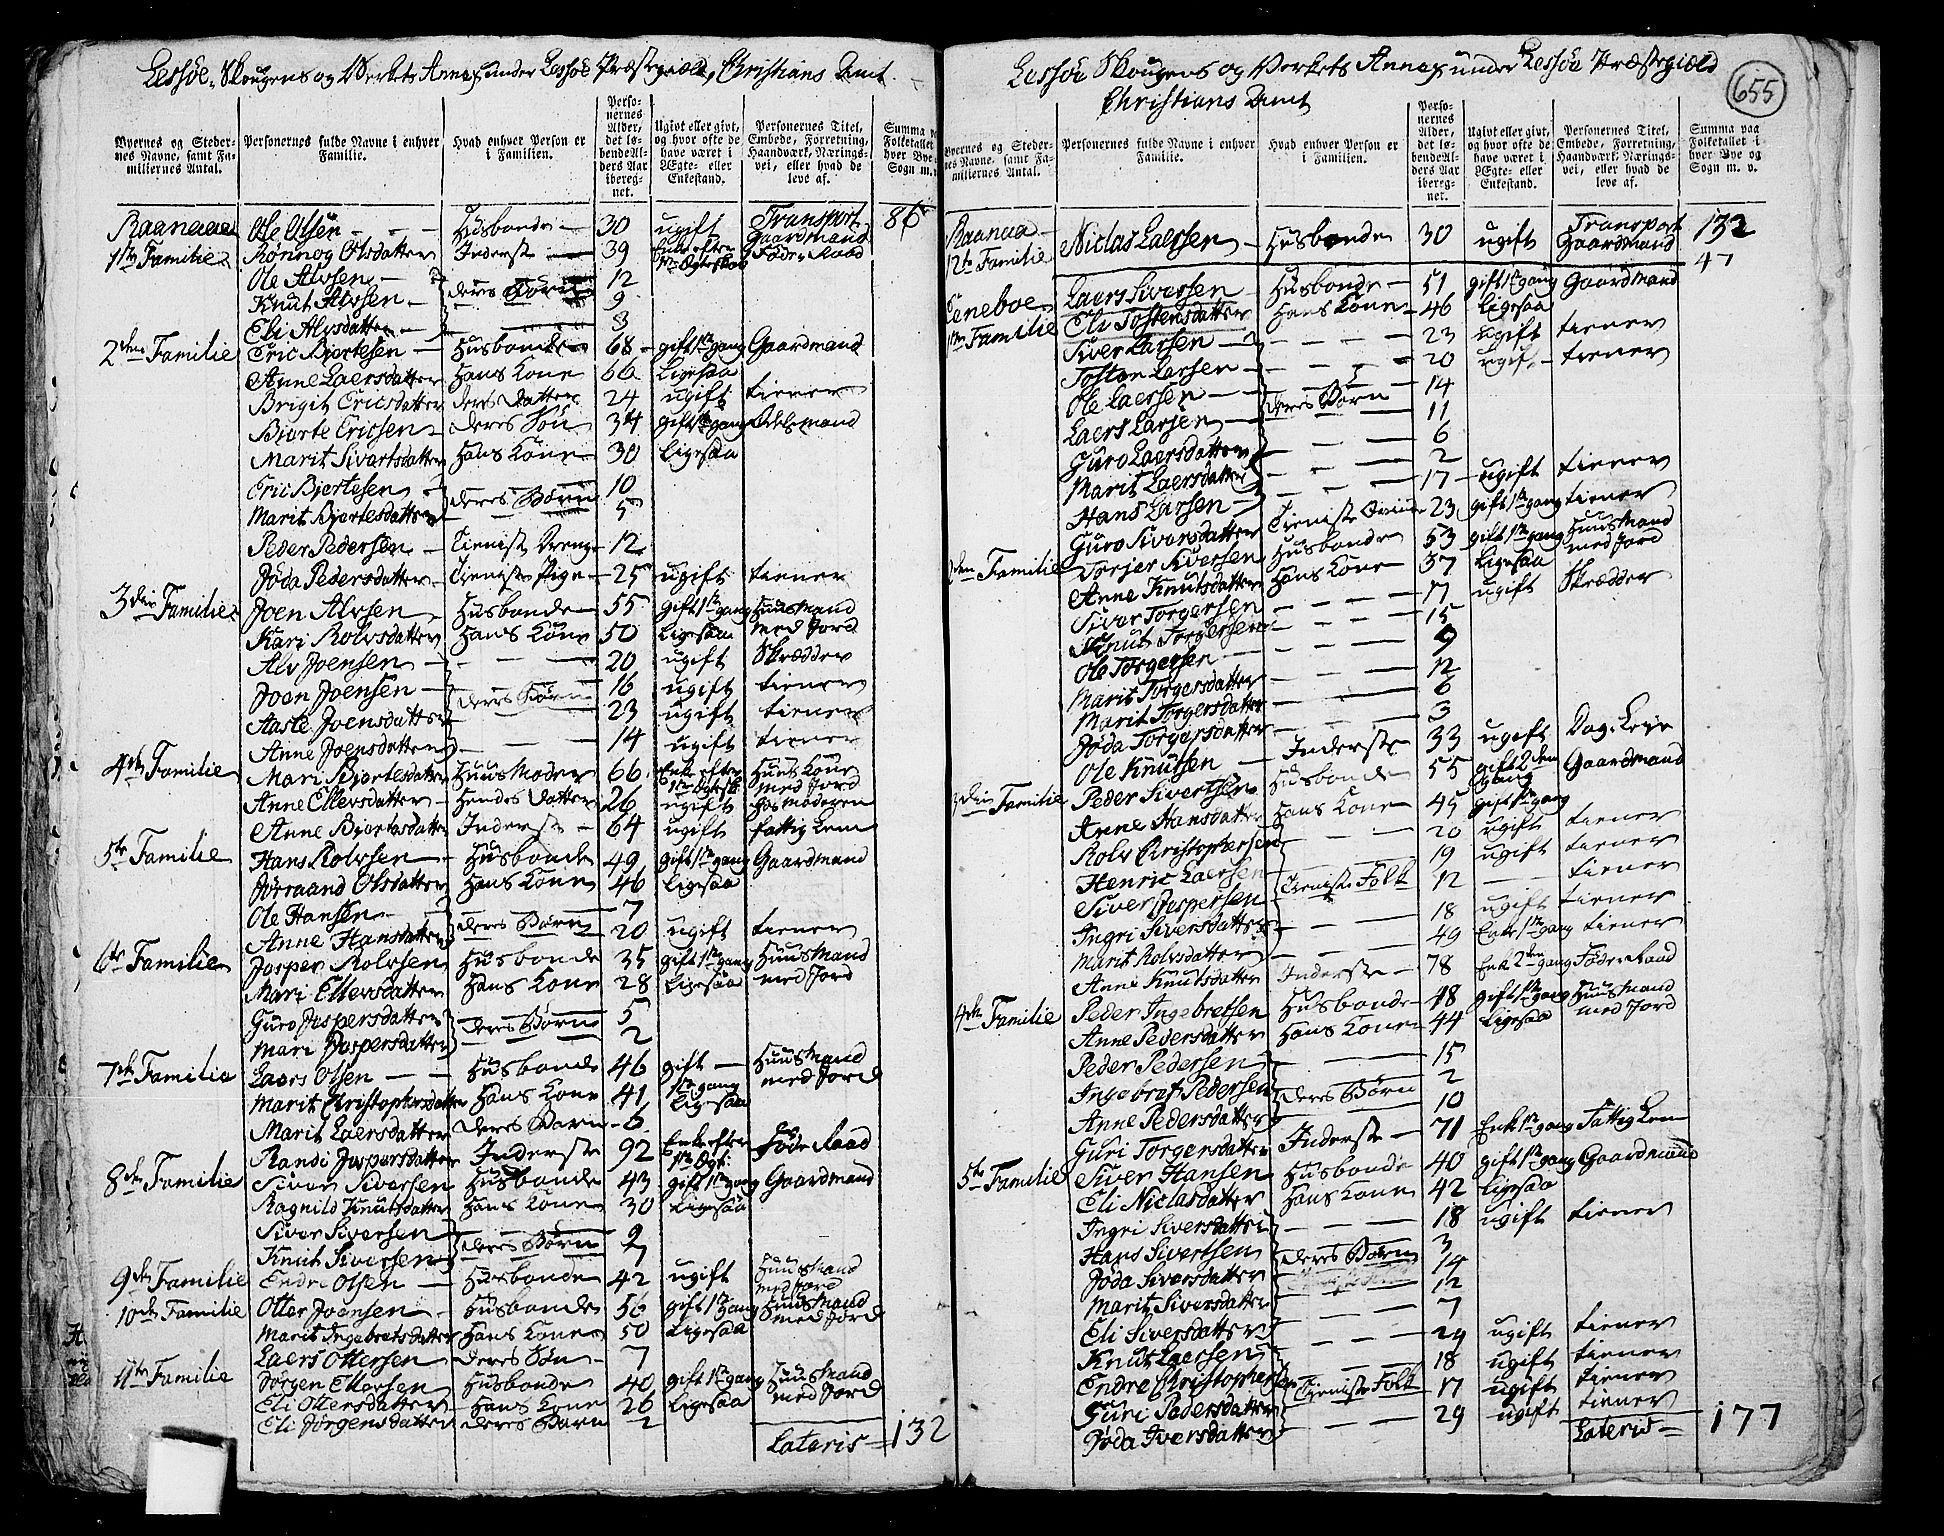 Lessøe, Skougens og Verkets Annex under Lessøe Præstegiæld, Christians Amt
Byernes og Stedernes Navne, samt Familiernes Antal. | Personernes fulde Navne i enhver Familie. | Hvad enhver Person er i Familien. | Personernes Alder, det løbende Alders Aar iberegnet. | Ugivt eller givt, og hvor ofte de have været i Ægte- eller Enkestand. | Personernes Titel, Embede, Forretning, Haandværk, Næringsvei, eller hvad de leve af. | Summa paa Folketallet i hver Bye og Sogn m. v.
Transport 86
Raanaaa 1ste Familie Ole Olsen Husbonde 30 ugift Gaardmand
Rønnog Olsdatter Inderst 39 Enke efter 1ste Ægteskab Føde-Raad
Ole Alvsen 12
Knut Alvsen deres Børn 9
Eli Alvsdatter 3
2den Familie Eric Bjertesen Husbonde 68 gift 1ste gang Gaardmand
Anne Laersdatter Hans Kone 66 Ligesaa
Brigit Ericsdatter deres Datter 24 ugift tiener
Bjorte Ericsen deres Søn 34 gift 1ste gang Odelsmand
Marit Sivertsdatter Hans Kone 30 Ligesaa
Eric Bjertesen 10
Marit Bjertesdatter deres Børn 5
Peder Pedersen Tieniste Dreng 12
Jøda Pedersdatter Tieniste Pige 25 ugift tiener
3die Familie Joen Alvsen Husbonde 55 gift 1ste gang Huusmand med Jord
Kari Rolvsdatter Hans Kone 50 Ligesaa
Alv Joensen 20 ugift Skrædder
Joen Joensen deres Børn 16 ugift tiener
Aaste Joensdatter 23 ugift tiener
Anne Joensdatter 14 ugift tiener
4de Familie Mari Bjertesdatter Huus Moder 66 Enke efter 1ste Ægtesk. Huus Kone med Jord
Anne Ellevsdatter Hendes Datter 26 ugift hos moderen
Anne Bjertesdatter Inderste 64 ugift fattig Lem
5te Familie Hans Rolvsen Husbonde 49 gift 1ste gang Gaardmand
Jørraand Olsdatter Hans Kone 46 Ligesaa
Ole Hansen 7
Anne Hansdatter deres Børn 20 ugift tiener
6te Familie Jesper Rolvsen Husbonde 35 gift 1ste gang Huusmand med Jord
Mari Ellevsdatter Hans Kone 28 Ligesaa
Guro Jespersdatter 5
Mari Jespersdatter deres Børn 2
7de Familie Laers Olsen Husbonde 46 gift 1ste gang Huusmand med Jord
Marit Christophersdatter Hans Kone 41 Ligesaa
Marit Laersdatter deres Barn 6
Randi Jespersdatter Inderste 92 Enke efter 1ste Ægt: Føde Raad
8de Familie Siver Siversen Husbonde 43 gift 1ste gang Gaardmand
Ragnild Knutsdatter Hans Kone 30 Ligesaa
Siver Siversen 9
Knut Siversen deres Børn 7
9de Familie Endre Olsen Husbonde 42 ugift Huusmand med Jord
10de Familie Otter Joensen Husbonde 56 gift 1ste gang Huusmand med Jord
Marit Ingebretsdatter Hans Kone 50 Ligesaa
Laers Ottersen deres Søn 7
11te Familie Jørgen Ellevsen Husbonde 40 gift 1ste gang Huusmand med Jord
Eli Ottersdatter Hans Kone 26 Ligesaa
Eli Jørgensdatter deres Barn 2
Lateris 132
655
Lessøe Skougens og Verkets Annex under Lessøe Præstegiæld
Christians Amt
Byernes og Stedernes Navne, samt Familiernes Antal. | Personernes fulde Navne i enhver Familie. | Hvad enhver Person er i Familien. | Personernes Alder, det løbende Alders Aar iberegnet. | Ugivt eller givt, og hvor ofte de have været i Ægte- eller Enkestand. | Personernes Titel, Embede, Forretning, Haandværk, Næringsvei, eller hvad de leve af. | Summa paa Folketallet i hver Bye og Sogn m. v.
Transport 132
Raanaa 12te Familie Niclas Laersen Husbonde 30 ugift Gaardmand
47
Eneboe 1ste Familie Laers Siversen Husbonde 51 gift 1ste gang Gaardmand
Eli Tostensdatter Hans Kone 46 Ligesaa
Siver Larsen 23 ugift tiener
Tosten Larsen 20 ugift tiener
Ole Laersen deres Børn 14
Laers Larsen 11
Guro Laersdatter 6
Marit Laersdatter 2
Hans Larsen 17 ugift tiener
Guro Siversdatter Tieniste 23 gift 1ste gang tiener
2den Familie Torger Siversen Husbonde 53 gift 1ste gang Huusmand med Jord
Anne Knutsdatter Hans Kone 37 Ligesaa
Siver Torgersen 17 ugift Skrædder
Knut Torgersen 15
Ole Torgersen 9
Marit Torgersdatter 12
Marit Torgersdatter 6
Jøda Torgersdatter 3
Ole Knutsen Inderste 33 ugift Dag-Leje
3die Familie Peder Sivertsen Husbonde 55 gift 2den gang Gaardmand
Anne Hansdatter Hans Kone 45 gift 1ste gang
Rolv Christophersen 20 ugift tiener
Henric Laersen 19 ugift tiener
Siver Jespersen Tieniste Folk 12 tiener
Ingri Siversdatter 18 ugift tiener
Marit Rolvsdatter 49 Enke 1ste gang tiener
Anne Knutsdatter Inderste 78 Enk 2den gang Føde-Raad
4de Familie Peder Ingebretsen Husbonde 48 gift 1ste gang Huusmand med Jord
Anne Pedersdatter Hans Kone 44 Ligesaa
Peder Pedersen 15
Ingebret Pedersen deres Børn 2
Anne Pedersdatter 10
Guri Torgersdatter Inderste 71 Enk 1ste gang Fattig Lem
5te Familie Siver Hansen Husbonde 40 gift 1ste gang Gaardmand
Eli Niclasdatter Hans Kone 42 Ligesaa
Ingri Siversdatter 18 ugift tiener
Hans Sivertsen deres Børn 3
Jøda Siversdatter 14
Marit Siversdatter 12
Eli Siversdatter 7
Knut Laersen 29 ugift tiener
Endre Christophersen Tieniste Folk 18 ugift tiener
Guri Pedersdatter 17 ugift tiener
Jøda Iversdatter 29 ugift tiener
Lateris 177